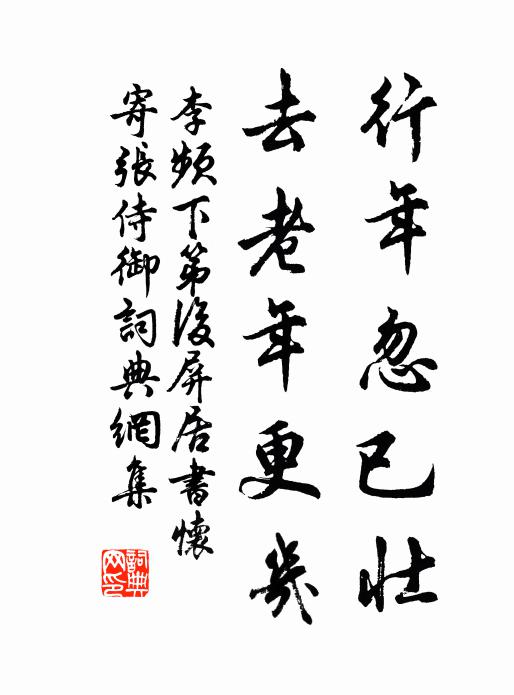 行年忽已壯
去老年更幾
李頻下第後屏居書懷
寄張侍御詞典網集
詞典
网印